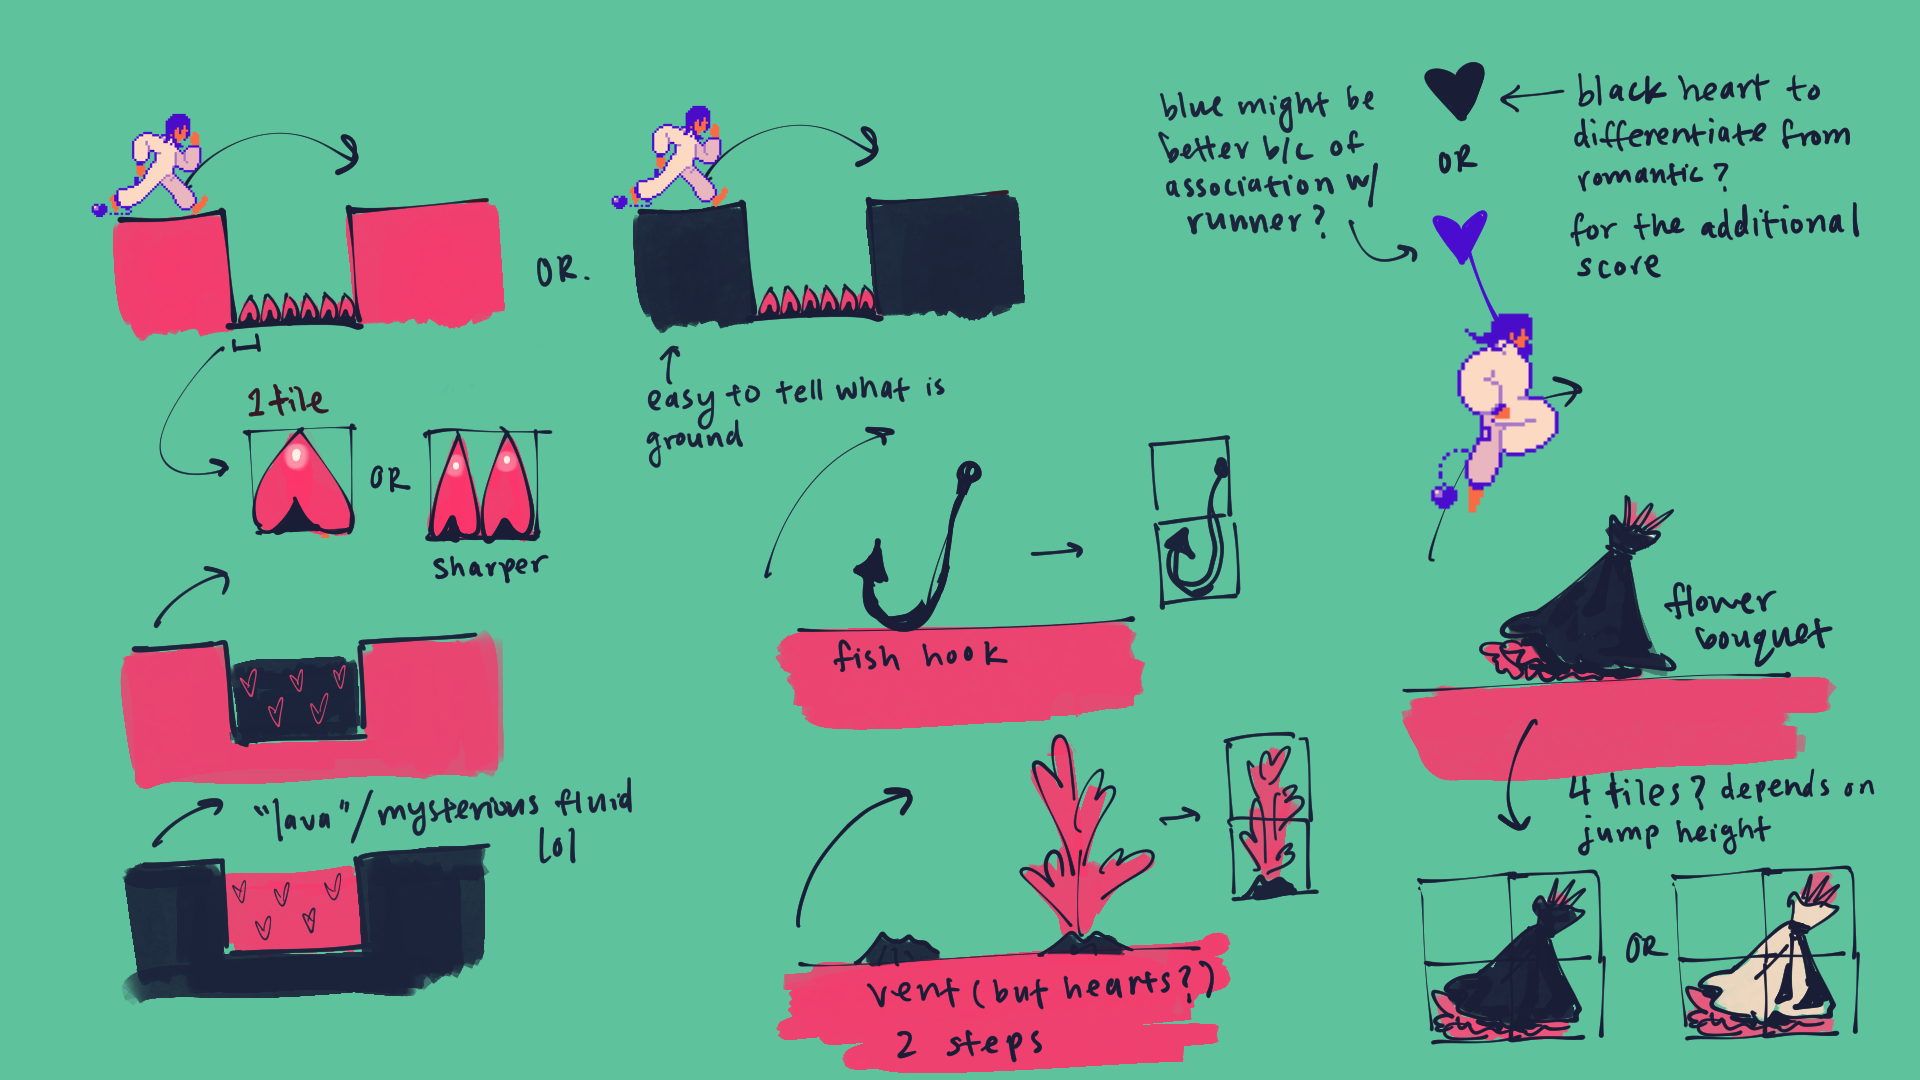 OR.
easy to tell what is
ground
1 tile
OR
sharper
"lava"/mysterious fluid
lol
fish hook
vent (but hearts?)
2 steps
blue might be
better b/c of
association w/
runner?
OR
black heart to
differentiate from
romantic?
for the additional
score
flower
bouquet
4 tiles? depends on
jump height
OR